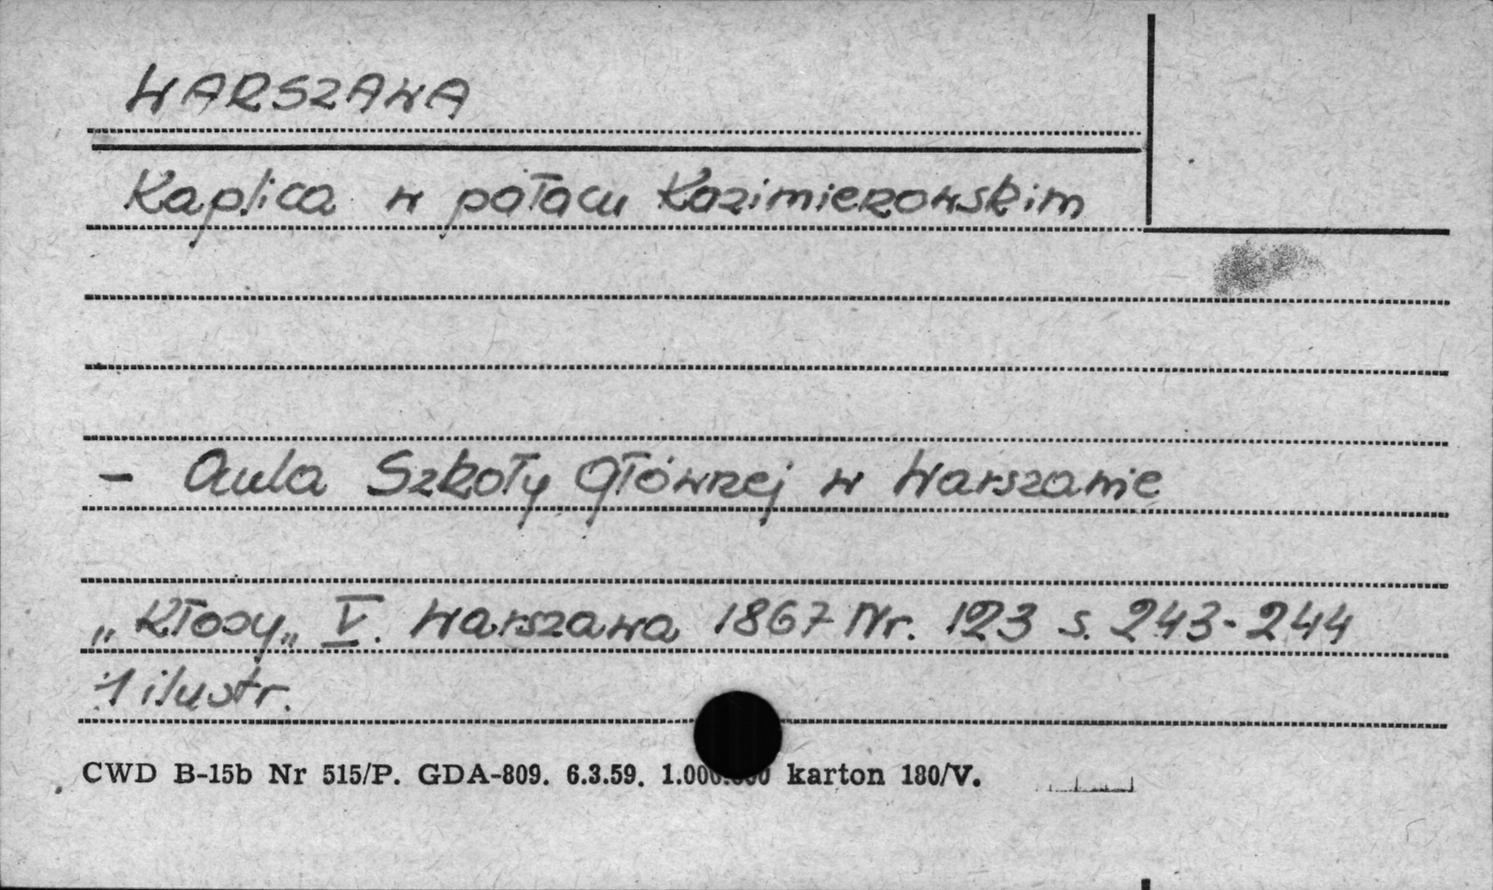 WARSZAWA
Kaplica w pałacu Kazimierowskim
– Aula Szkoły Głównej w Warszawie
„Kłosy„ V. Warszawa 1867 Nr. 123 s. 243-244
1 ilustr.
CWD B-15b Nr 515/P. GDA-809. 6.3.59. 1.000.000 karton 180/V.